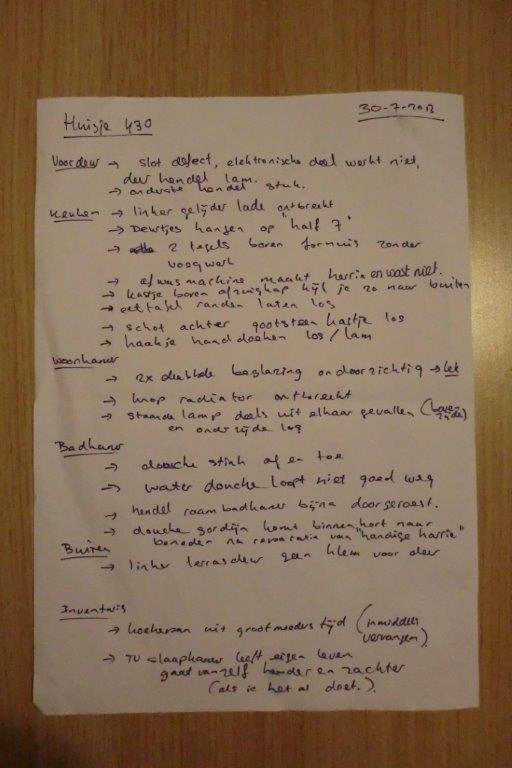 Huisje 430
30-7-2012
Voordeur → slot defect, elektronische deel werkt niet,
deur hendel lam.
→ onderste hendel stuk.
Keuken → linker geleider lade ontbreekt
→ Deurtjes hangen op "half 7"
→ 2 tegels boven fornuis zonder
voegwerk
→ afwasmachine maakt herrie en wast niet.
→ kastje boven afzuigkap kijk je zo naar buiten
→ eettafel randen laten los
→ schot achter gootsteen kastje los
→ haakje handdoeken los/lam
Woonkamer
→ 2x dubbele beglazing ondoorzichtig → lek
→ knop radiator ontbreekt
→ staande lamp deels uit elkaar gevallen (bovenzijde)
en onderzijde los
Badkamer
→ douche stink af en toe
→ water douche loopt niet goed weg
→ hendel raam badkamer bijna doorgeroest.
→ douche gordijn komt binnenkort naar
beneden na reparatie van "handige harrie"
Buiten
→ linker terrasdeur geen klem voor deur
Inventaris
→ koekenpan uit grootmoeders tijd (inmiddels
vervangen)
→ TV slaapkamer leeft eigen leven
gaat vanzelf harder en zachter
(als ie het al doet.)